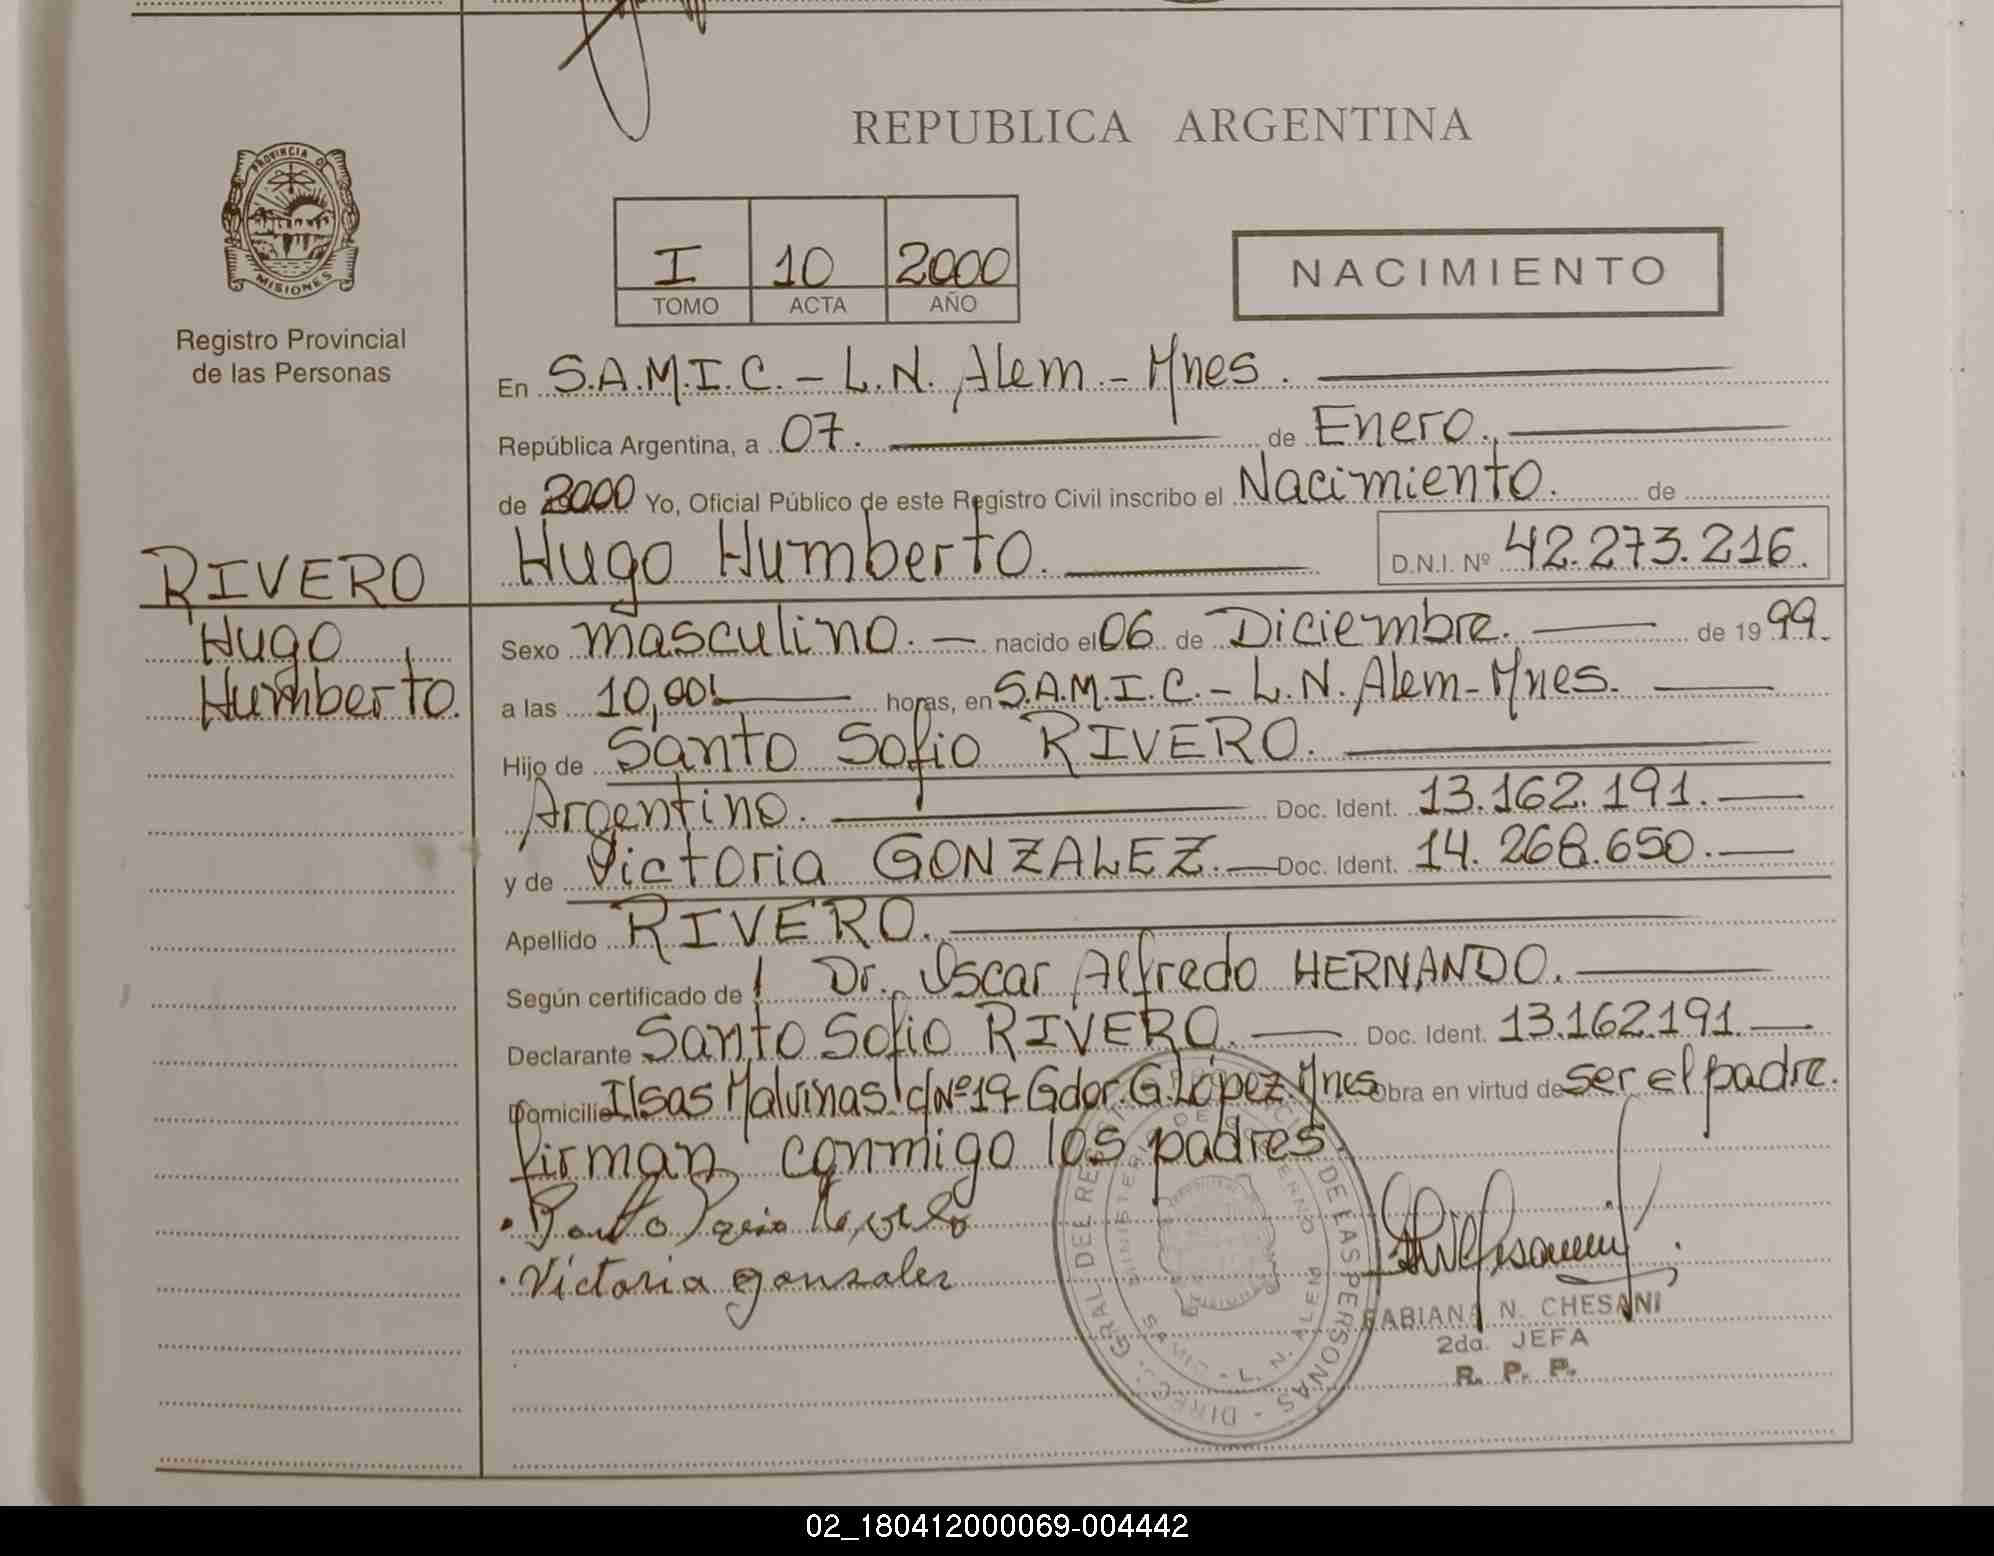 REPUBLICA ARGENTINA
PROVINCIA DE
MISIONES
Registro Provincial
de las Personas
I 10 2000
TOMO ACTA AÑO
NACIMIENTO
En S.A.M.I.C. - L.N. Alem - Mnes.
República Argentina, a 07. de Enero.
de 2000 Yo, Oficial Público de este Registro Civil inscribo el Nacimiento. de
Hugo Humberto. D.N.I. Nº 42.273.216.
RIVERO
Hugo
Humberto.
Sexo masculino. nacido el 06 de Diciembre. de 19 99.
a las 10,00 horas, en S.A.M.I.C. - L.N. Alem - Mnes.
Hijo de Santo Sofio RIVERO.
Argentino. Doc. Ident. 13.162.191.
y de Victoria GONZALEZ. Doc. Ident. 14.268.650.
Apellido RIVERO.
Según certificado de Dr. Oscar Alfredo HERNANDO.
Declarante Santo Sofio RIVERO. Doc. Ident. 13.162.191.
Domicilio Ilsas Malvinas c/Nº 19 Gdor. G. López. Mnes Obra en virtud de ser el padre.
firman conmigo los padres
Victoria gonzalez
DIREC. GRAL DEL REGISTRO PROVINCIAL DE LAS PERSONAS
MINISTERIO DE GOBIERNO
SAMIC - L. N. ALEM
FABIANA N. CHESANI
2da. JEFA
R. P. P.
02_180412000069-004442